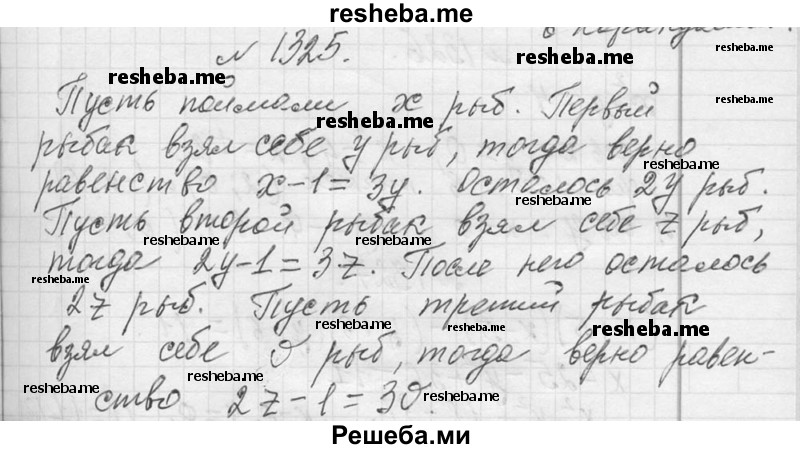 resheba.me
в порядке
№ 1325.
resheba.me
resheba.me
resheba.me
Пусть поймали x рыб. Первый
resheba.me
resheba.me
рыбак взял себе y рыб, тогда верно
resheba.me
равенство x-1=3y. Осталось 2y рыб.
resheba.me
Пусть второй рыбак взял себе z рыб,
resheba.me
resheba.me
тогда 2y-1=3z. После него осталось
resheba.me
resheba.me
2z рыб. Пусть третий рыбак
resheba.me
resheba.me
взял себе v рыб, тогда верно равен-
resheba.me
resheba.me
ство 2z-1=3v.
resheba.me
Решеба.ми